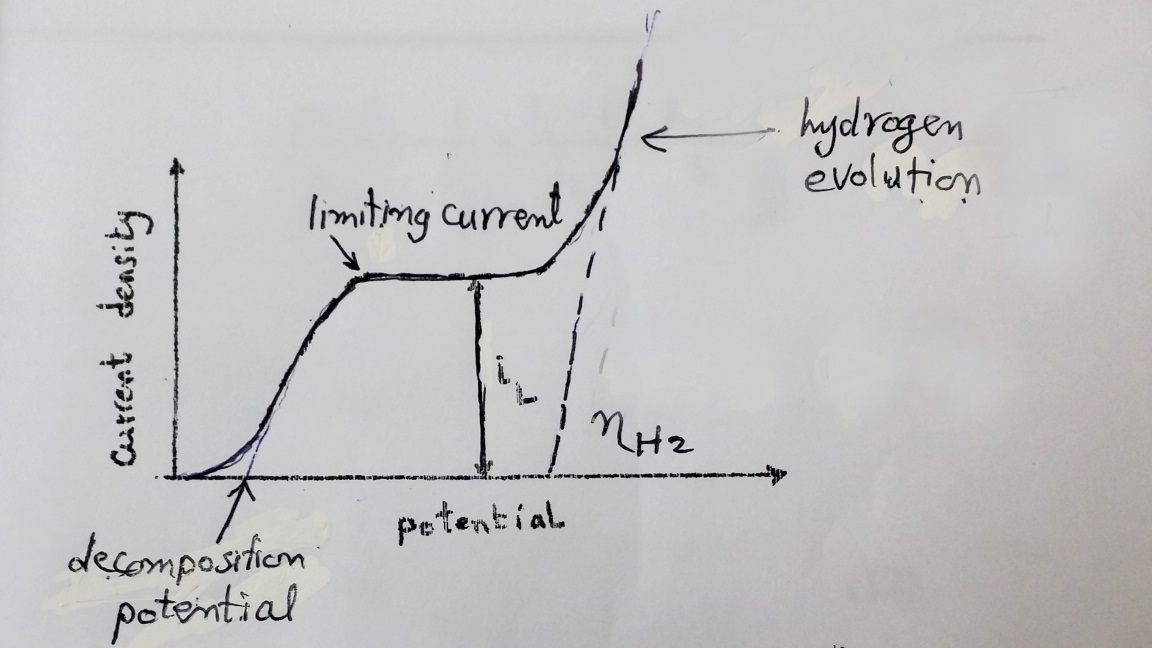 hydrogen
evolution
limiting current
Current density
iL
ηH2
potential
decomposition
potential